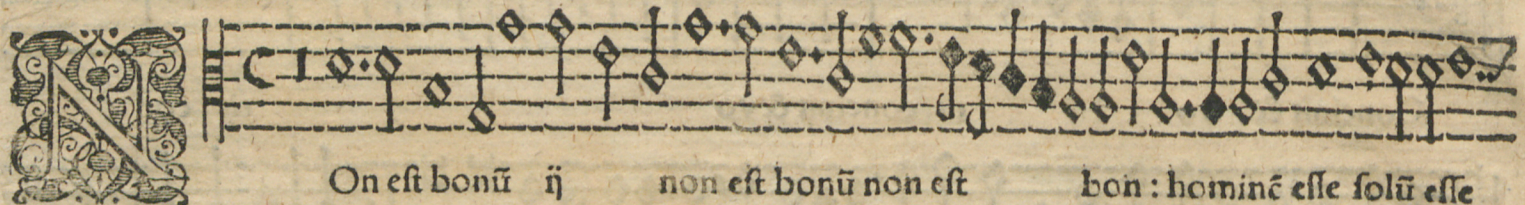 NOn eſt bonū ij non eſt bonū non eſt bon : hominē eſſe ſolū eſſe